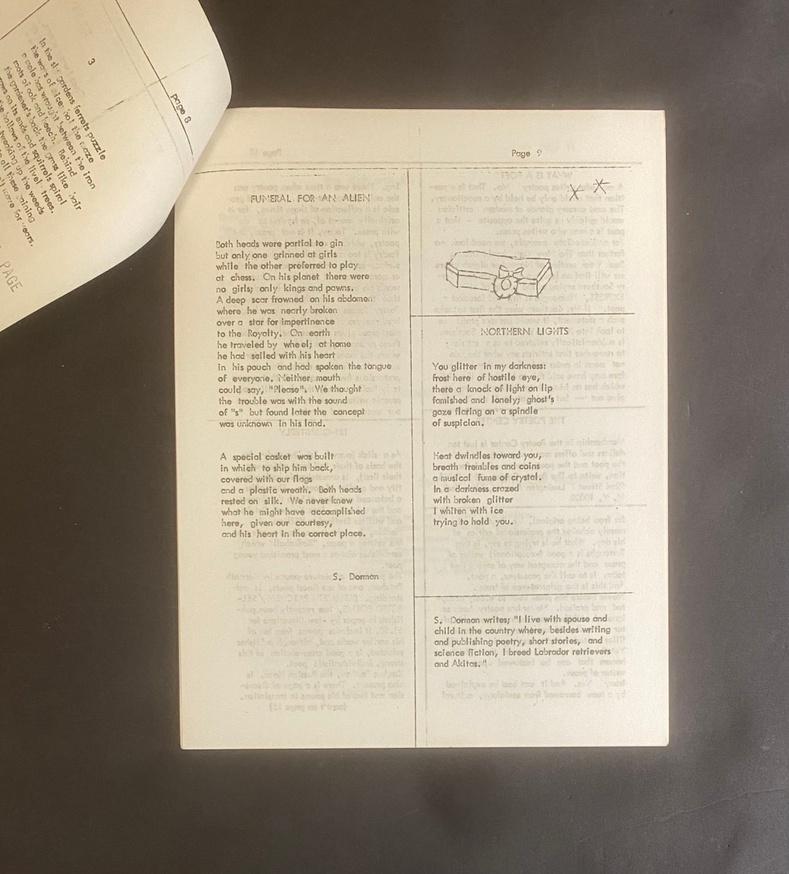 3
page 8
PAGE
Page 9
FUNERAL FOR AN ALIEN
Both heads were partial to gin
but only one grinned at girls
while the other preferred to play
at chess. On his planet there were
no girls; only kings and pawns.
A deep scar frowned on his abdomen
where he was nearly broken
over a star for impertinence
to the Royalty. On earth
he traveled by wheel; at home
he had sailed with his heart
in his pouch and had spoken the tongue
of everyone. Neither mouth
could say, "Please". We thought
the trouble was with the sound
of "s" but found later the concept
was unknown in his land.
A special casket was built
in which to ship him back,
covered with our flags
and a plastic wreath. Both heads
rested on silk. We never knew
what he might have accomplished
here, given our courtesy,
and his heart in the correct place.
S. Dorman
NORTHERN LIGHTS
You glitter in my darkness:
frost here of hostile eye,
there a knock of light on lip
famished and lonely; ghost's
gaze flaring on a spindle
of suspicion.
Heat dwindles toward you,
breath trembles and coins
a musical fume of crystal.
In a darkness crazed
with broken glitter
I whiten with ice
trying to hold you.
S. Dorman writes; "I live with spouse and
child in the country where, besides writing
and publishing poetry, short stories, and
science fiction, I breed Labrador retrievers
and Akitas."